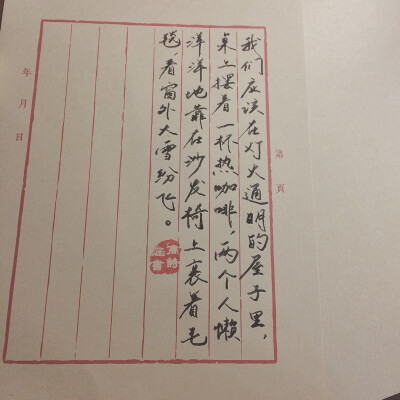 我们应该在灯火通明的屋子里，
桌上摆着一杯热咖啡，两个人懒
洋洋地靠在沙发椅上裹着毛
毯，看窗外大雪纷飞。
第 頁
年 月 日